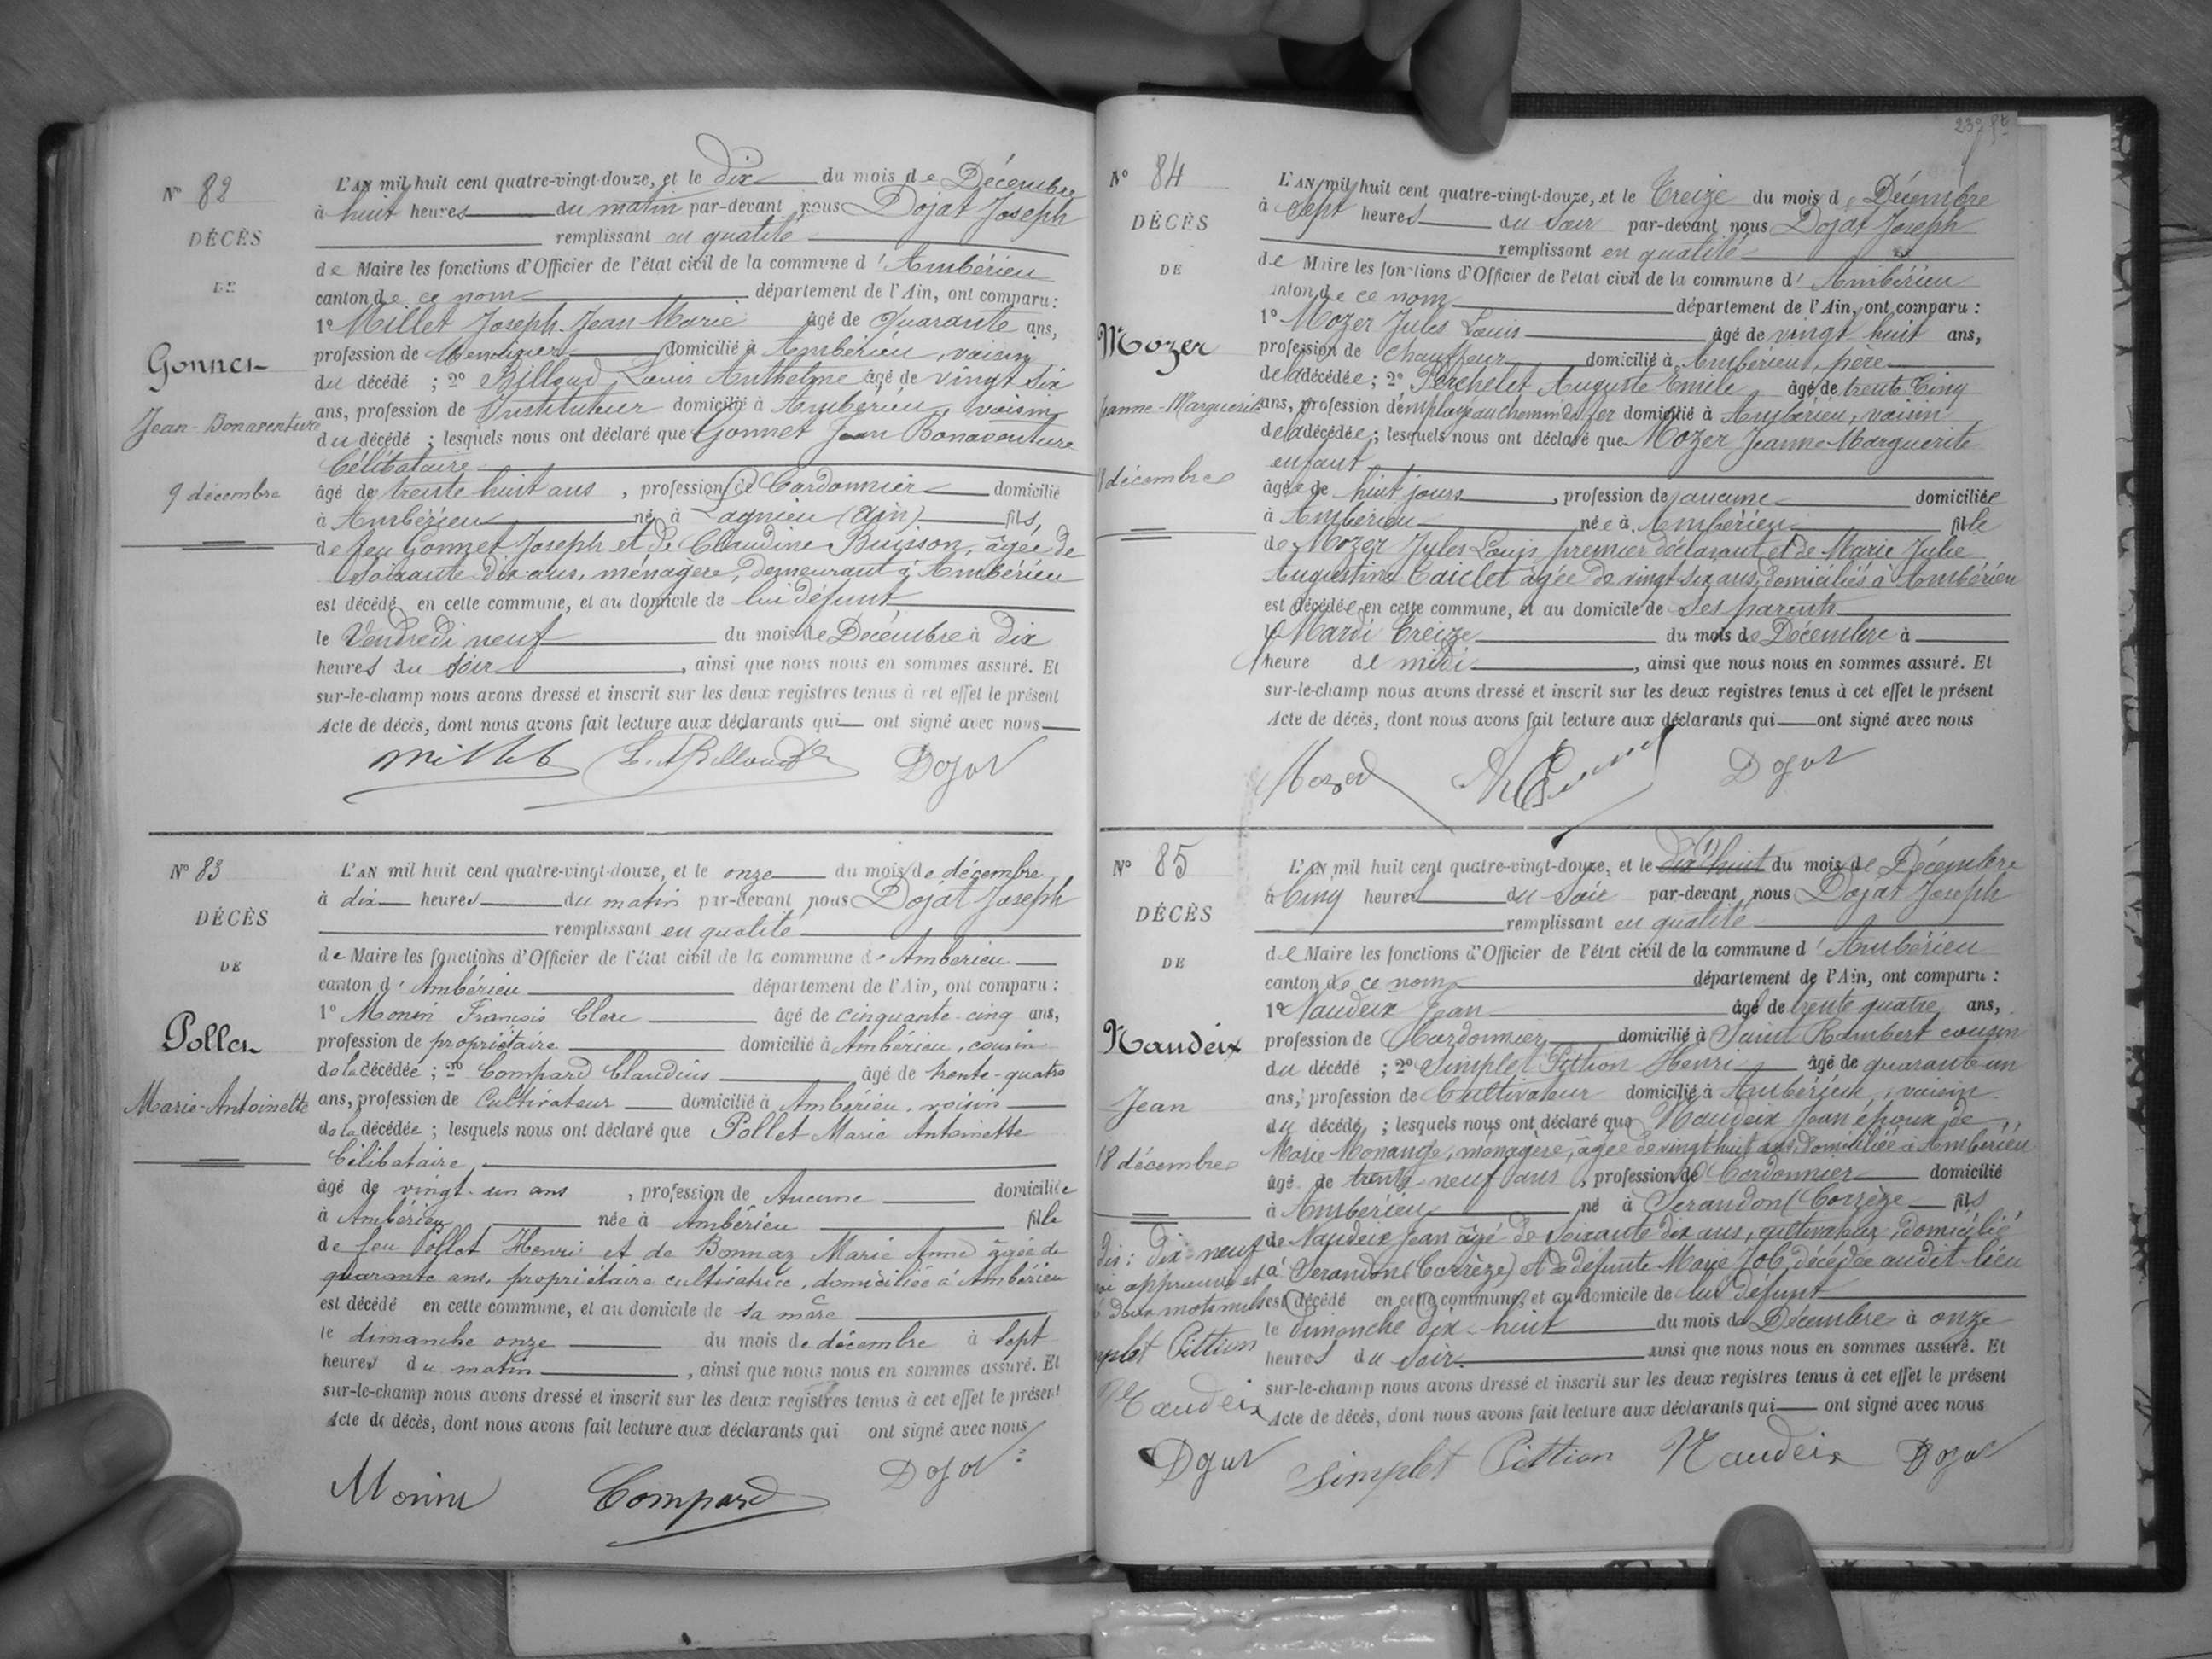 N° 82
DÉCÈS
DE
Gonnet
Jean-Bonaventure
9 décembre
L'AN mil huit cent quatre-vingt-douze, et le dix du mois de Décembre
à huit heures du matin par-devant nous Dojat Joseph
remplissant en qualité
de Maire les fonctions d'Officier de l'état civil de la commune d'Ambérieu
canton de ce nom département de l'Ain, ont comparu :
1° Millet Joseph Jean Marie âgé de Quarante ans,
profession de Menuisier domicilié à Ambérieu, voisin
du décédé ; 2° Billoud Louis Anthelme âgé de vingt six
ans, profession de Instituteur domicilié à Ambérieu, voisin
du décédé ; lesquels nous ont déclaré que Gonnet Jean Bonaventure
Célibataire
âgé de trente huit ans , profession de Cordonnier domicilié
à Ambérieu né à Lagnieu (Ain) fils,
de feu Gonnet Joseph et de Claudine Buisson, âgée de
soixante dix ans, ménagère, demeurant à Ambérieu
est décédé en cette commune, et au domicile de lui défunt
le Vendredi neuf du mois de Décembre à dix
heures du soir , ainsi que nous nous en sommes assuré. Et
sur-le-champ nous avons dressé et inscrit sur les deux registres tenus à cet effet le présent
Acte de décès, dont nous avons fait lecture aux déclarants qui ont signé avec nous
Millet L. A. Billoud Dojat
N° 83
DÉCÈS
DE
Pollet
Marie-Antoinette
L'AN mil huit cent quatre-vingt-douze, et le onze du mois de décembre
à dix heures du matin par-devant nous Dojat Joseph
remplissant en qualité
de Maire les fonctions d'Officier de l'état civil de la commune de Ambérieu
canton d'Ambérieu département de l'Ain, ont comparu :
1° Monin François Clerc âgé de cinquante-cinq ans,
profession de propriétaire domicilié à Ambérieu, cousin
de la décédée ; 2° Compard Claudius âgé de trente-quatre
ans, profession de Cultivateur domicilié à Ambérieu, voisin
de la décédée ; lesquels nous ont déclaré que Pollet Marie Antoinette
Célibataire
âgé de vingt-un ans , profession de Aucune domiciliée
à Ambérieu née à Ambérieu fille
de feu Pollet Henri et de Bonnaz Marie Anne âgée de
quarante ans, propriétaire cultivatrice, domiciliée à Ambérieu
est décédé en cette commune, et au domicile de sa mère
le dimanche onze du mois de décembre à sept
heures du matin , ainsi que nous nous en sommes assuré. Et
sur-le-champ nous avons dressé et inscrit sur les deux registres tenus à cet effet le présent
Acte de décès, dont nous avons fait lecture aux déclarants qui ont signé avec nous
Monin Compard Dojat
N° 84
DÉCÈS
DE
Mozer
Jeanne-Marguerite
décembre
L'AN mil huit cent quatre-vingt-douze, et le Treize du mois de Décembre
à Sept heures du Soir par-devant nous Dojat Joseph
remplissant en qualité
de Maire les fonctions d'Officier de l'état civil de la commune d'Ambérieu
canton de ce nom département de l'Ain, ont comparu :
1° Mozer Jules Louis âgé de vingt huit ans,
profession de Chauffeur domicilié à Ambérieu, père
de la décédée ; 2° Perchelet Auguste Emile âgé de trente Cinq
ans, profession d'employé au chemin de fer domicilié à Ambérieu, voisin
de la décédée ; lesquels nous ont déclaré que Mozer Jeanne Marguerite
enfant
âgée de huit jours , profession de aucune domiciliée
à Ambérieu née à Ambérieu fille
de Mozer Jules Louis, premier déclarant et de Marie Julie
Augustine Caiclet âgée de vingt-six ans, domiciliés à Ambérieu
est décédée en cette commune, et au domicile de Ses parents
le Mardi Treize du mois de Décembre à
heure de midi , ainsi que nous nous en sommes assuré. Et
sur-le-champ nous avons dressé et inscrit sur les deux registres tenus à cet effet le présent
Acte de décès, dont nous avons fait lecture aux déclarants qui ont signé avec nous
Mozer Dojat
N° 85
DÉCÈS
DE
Naudeix
Jean
18 décembre
L'AN mil huit cent quatre-vingt-douze, et le dix huit du mois de Décembre
à Cinq heures du Soir par-devant nous Dojat Joseph
remplissant en qualité
de Maire les fonctions d'Officier de l'état civil de la commune d'Ambérieu
canton de ce nom département de l'Ain, ont comparu :
1° Naudeix Jean âgé de trente quatre ans,
profession de Cordonnier domicilié à Saint Rambert cousin
du décédé ; 2° Simplet Pittion Henri âgé de quarante-un
ans, profession de Cultivateur domicilié à Ambérieu, voisin
du décédé ; lesquels nous ont déclaré que Naudeix Jean époux de
Marie Monange, ménagère, âgée de vingt huit ans, domiciliée à Ambérieu
âgé de trente-neuf ans , profession de Cordonnier domicilié
à Ambérieu né à Serandon (Corrèze fils
de Naudeix Jean âgé de Soixante dix ans, cultivateur, domicilié
à Serandon (Corrèze) et de défunte Marie Job, décédée audit lieu
est décédé en cette commune, et au domicile de lui défunt
le dimanche dix-huit du mois de Décembre à onze
heures du Soir ainsi que nous nous en sommes assuré. Et
sur-le-champ nous avons dressé et inscrit sur les deux registres tenus à cet effet le présent
Acte de décès, dont nous avons fait lecture aux déclarants qui ont signé avec nous
dix-neuf
approuvé et
deux mots nuls
Pittion
Naudeix
Dojat Simplet Pittion Naudeix Dojat